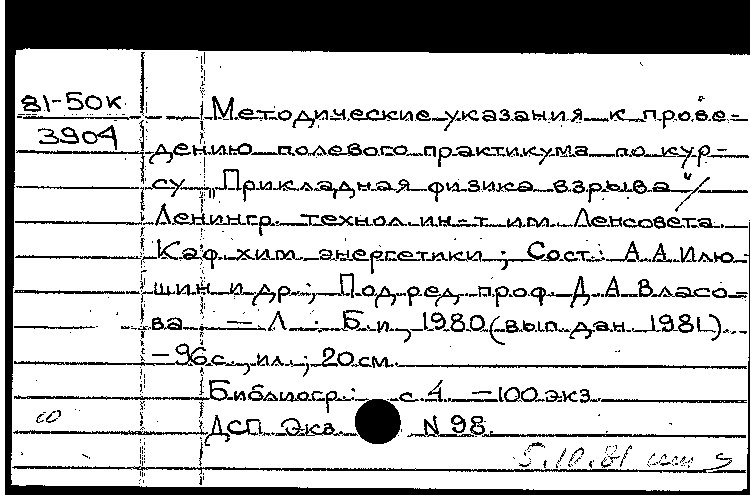 81-50К
3904
Методические указания к прове-
дению полевого практикума по кур-
су „Прикладная физика взрыва“/
Ленингр. технол. ин-т им. Ленсовета.
Каф. хим. энергетики; Сост.: А.А. Илю-
шин и др.; Под ред. проф. Д.А. Власо-
ва. — Л.: Б.и., 1980 (вып. дан. 1981).
— 96 с., ил.; 20 см.
Библиогр.: с. 4. — 100 экз.
ДСП Экз. N 98.
5.10.81